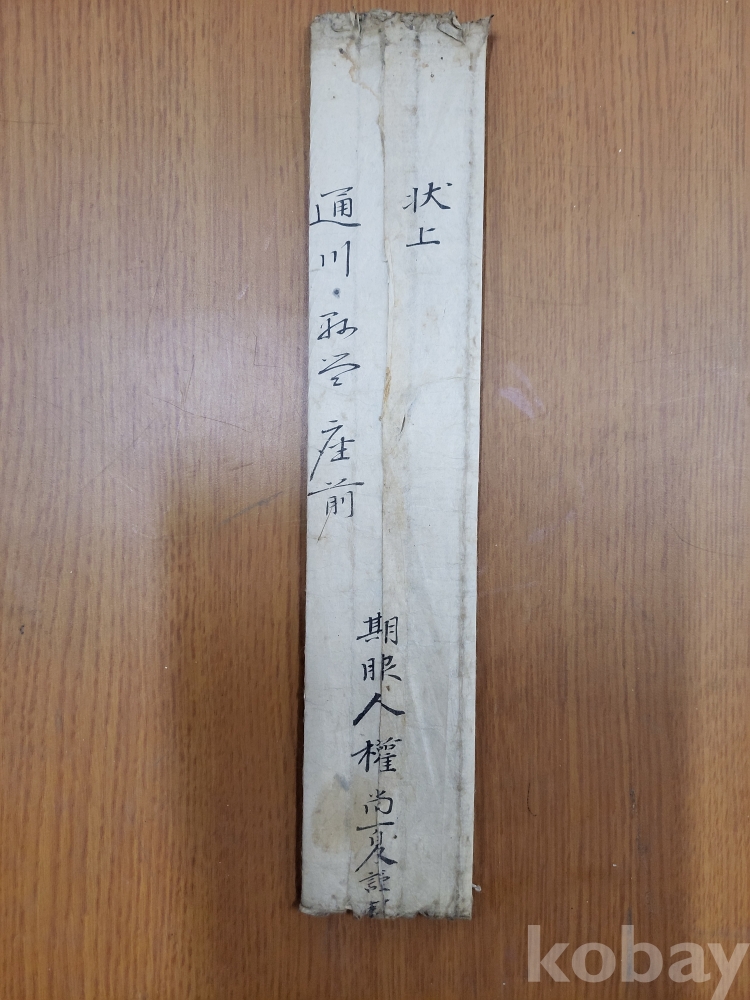 状上
通川 座前
期服人 權尚夏 謹
kobay